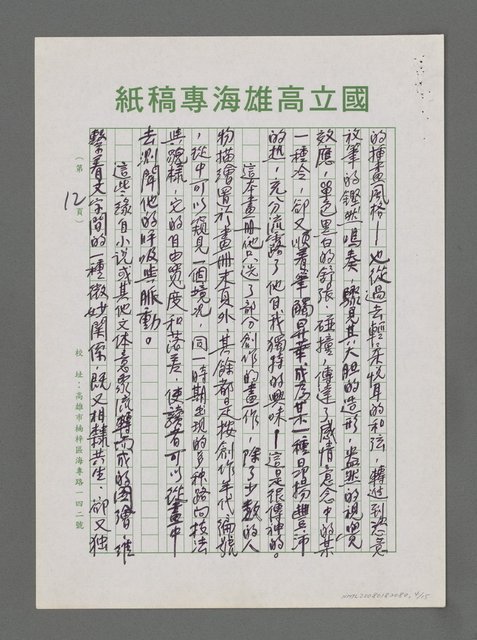 國立高雄海專稿紙
的插畫風格——也從過去輕柔悅耳的和弦,轉進到恣意
放筆的鏗然鳴奏,驟見其大胆的造形,盎然的視覺
效應,單色黑白的舒張、碰撞,傳達了感情意念中的某
一種冷,卻又順着筆觸昇華,成為某一種昂揚豐沛
的熱,充分流露了他自我獨特的興味——這是很傳神的。
這本畫冊他只选了部分創作的畫作,除了少數的人
物描繪置於畫冊末頁外,其餘都是按創作年代編號
,從中可以窺見一個境況,同一時期出現的多种路向技法
與貌樣,它的自由寬度和落差,使讀者可以從畫中
去測聞他的呼吸與脈動。
這些緣自小說或其他文体意象流轉而成的圖繪,維
繫着文字間的一種微妙關係,既又相隸共生,卻又独
(第12頁)
校址:高雄市楠梓區海專路一四二號
NMTL20080182080, 4/15